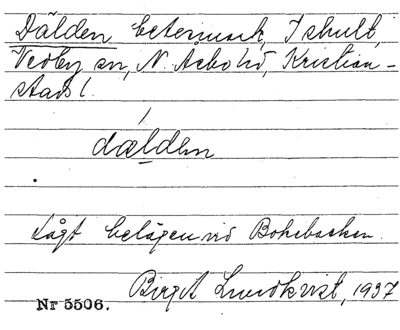 Dälden betesmark, Ishult,
Vedby sn, N. Åsbo hd, Kristian-
stads l.
dælden
Lågt belägen vid Bokebacken.
Birgit Lundkvist, 1937
Nr 5506.